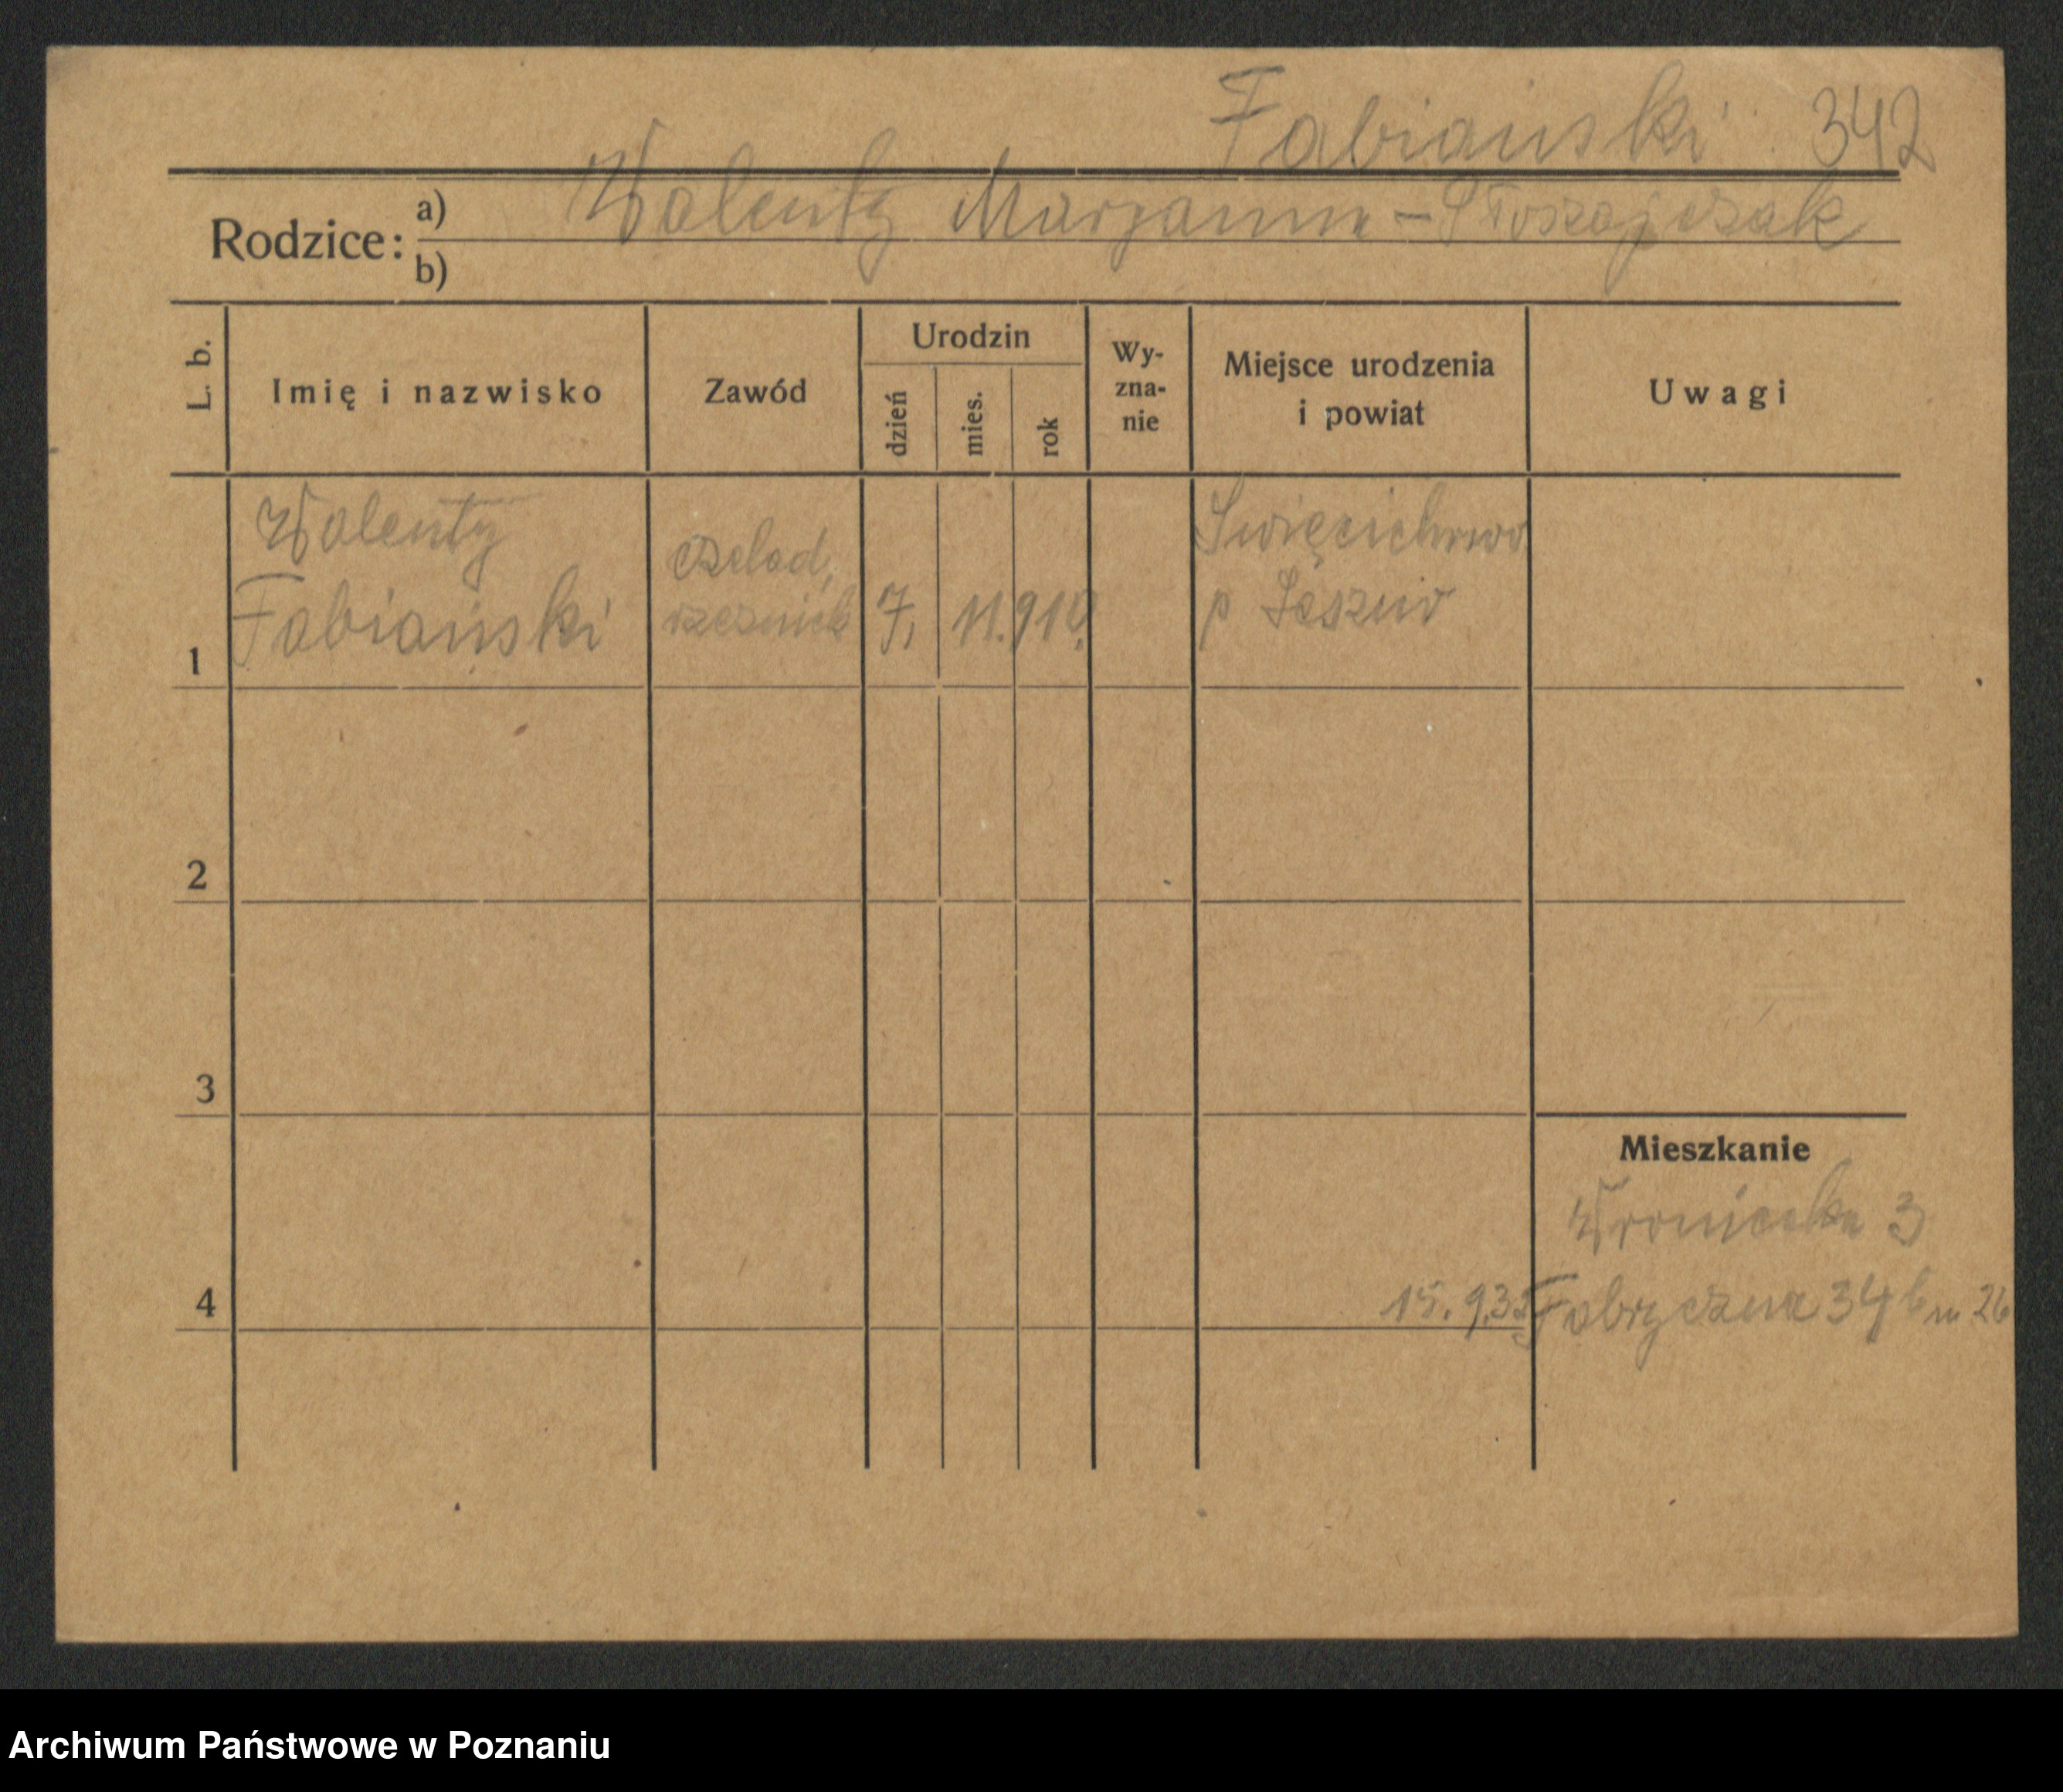 Fabiański 342
Rodzice: a) Walenty Marjanna - Ptoszajczak
b)
L. b.
Imię i nazwisko
Zawód
Urodzin
dzień
mies.
rok
Wy-
zna-
nie
Miejsce urodzenia
i powiat
Uwagi
1
Walenty
Fabiański
czelad.
rzeźnick
7.
11.
910.
Święciechowa
p Leszno
2
3
4
Mieszkanie
Wroniecka 3
15. 9.32 Fabryczna 34 b m 26
Archiwum Państwowe w Poznaniu